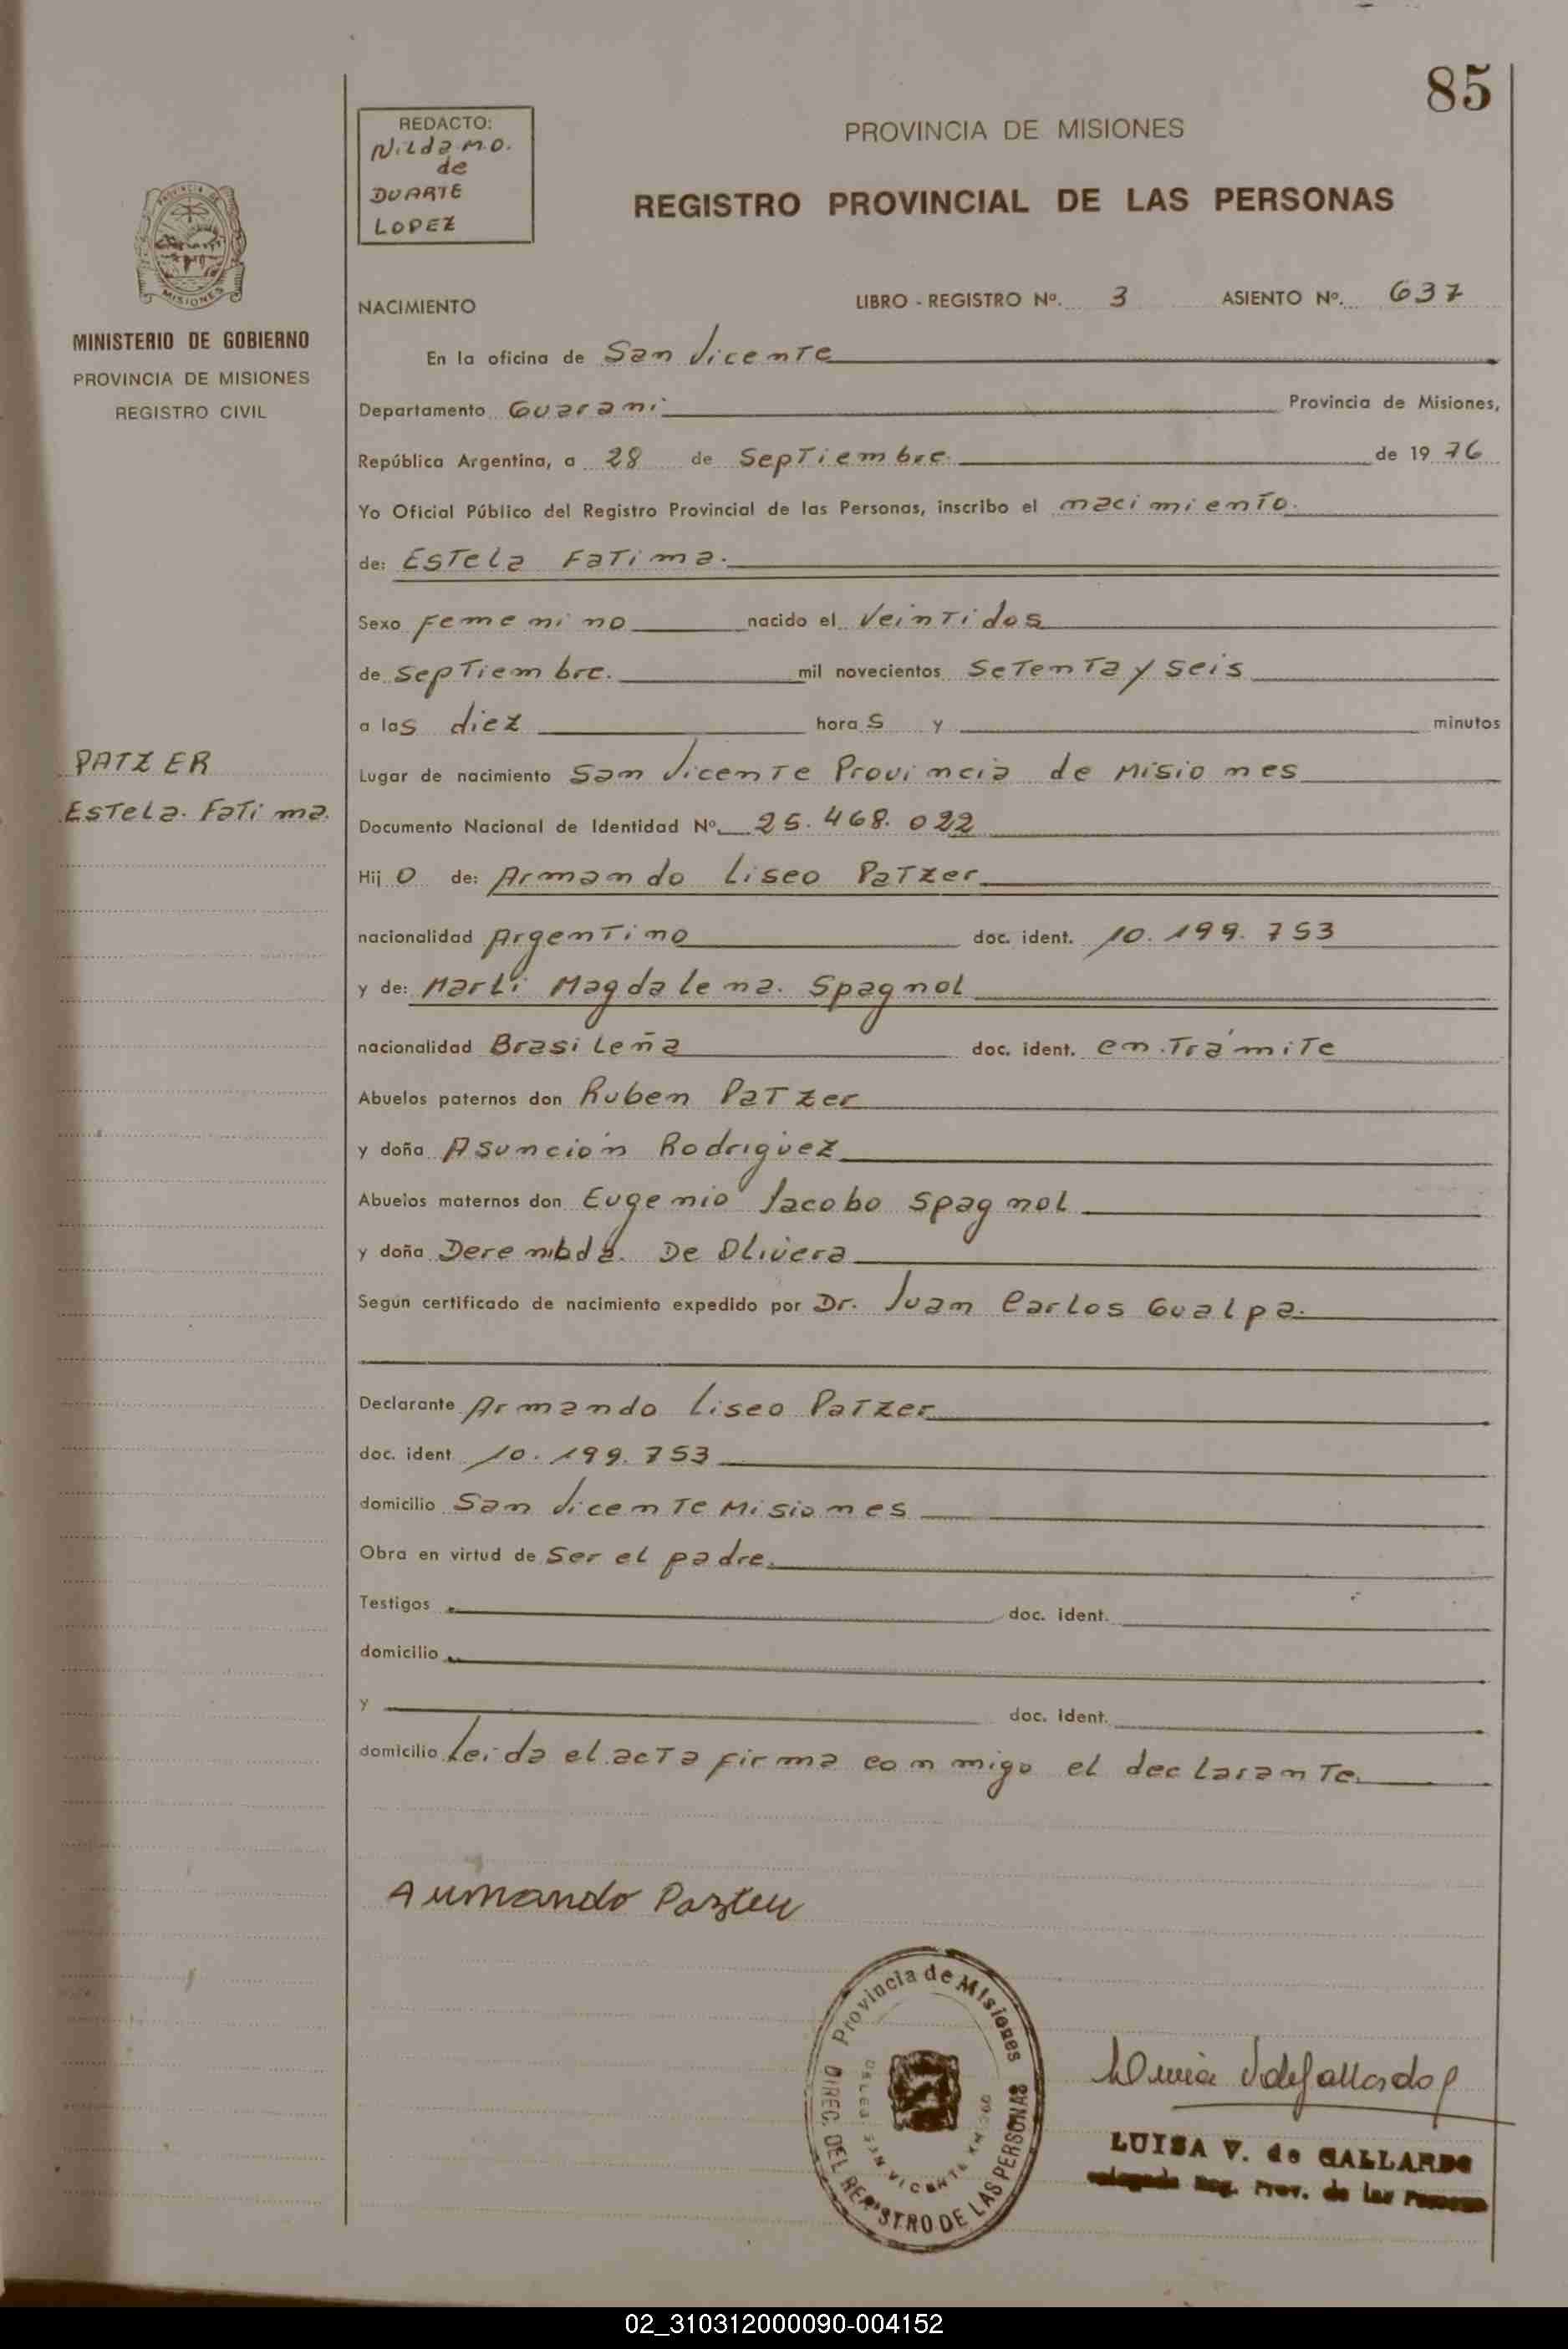 85
REDACTO:
Nilda M.O.
de
DUARTE
LOPEZ
PROVINCIA DE MISIONES
REGISTRO PROVINCIAL DE LAS PERSONAS
PROVINCIA DE
MISIONES
MINISTERIO DE GOBIERNO
PROVINCIA DE MISIONES
REGISTRO CIVIL
NACIMIENTO LIBRO - REGISTRO Nº. 3 ASIENTO Nº. 637
En la oficina de San Vicente
Departamento Guarani Provincia de Misiones,
República Argentina, a 28 de Septiembre de 19 76
Yo Oficial Público del Registro Provincial de las Personas, inscribo el nacimiento.
de: Estela Fatima.
Sexo Femenino nacido el Veintidos
de Septiembre. mil novecientos Setenta y Seis
a las diez horas y minutos
PATZER
Estela. Fatima.
Lugar de nacimiento San Vicente Provincia de Misiones
Documento Nacional de Identidad Nº 25.468.022
Hijo de: Armando Liseo Patzer
nacionalidad Argentino doc. ident. 10.199.753
y de: Marli Magdalena. Spagnol
nacionalidad Brasileña doc. ident. en Trámite
Abuelos paternos don Ruben Patzer
y doña Asunción Rodriguez
Abuelos maternos don Eugenio Jacobo Spagnol
y doña De Olivera
Según certificado de nacimiento expedido por Dr. Juan Carlos Gualpa.
Declarante Armando Liseo Patzer
doc. ident 10.199.753
domicilio San Vicente Misiones
Obra en virtud de Ser el padre.
Testigos doc. ident.
domicilio
y doc. ident.
domicilio Leida el acta firma conmigo el declarante.
Armando Pazter
Provincia de Misiones
DIREC. DEL REGISTRO DE LAS PERSONAS
SAN VICENTE
LUISA V. de GALLARDO
Delegada Reg. Prov. de las Personas
02_310312000090-004152